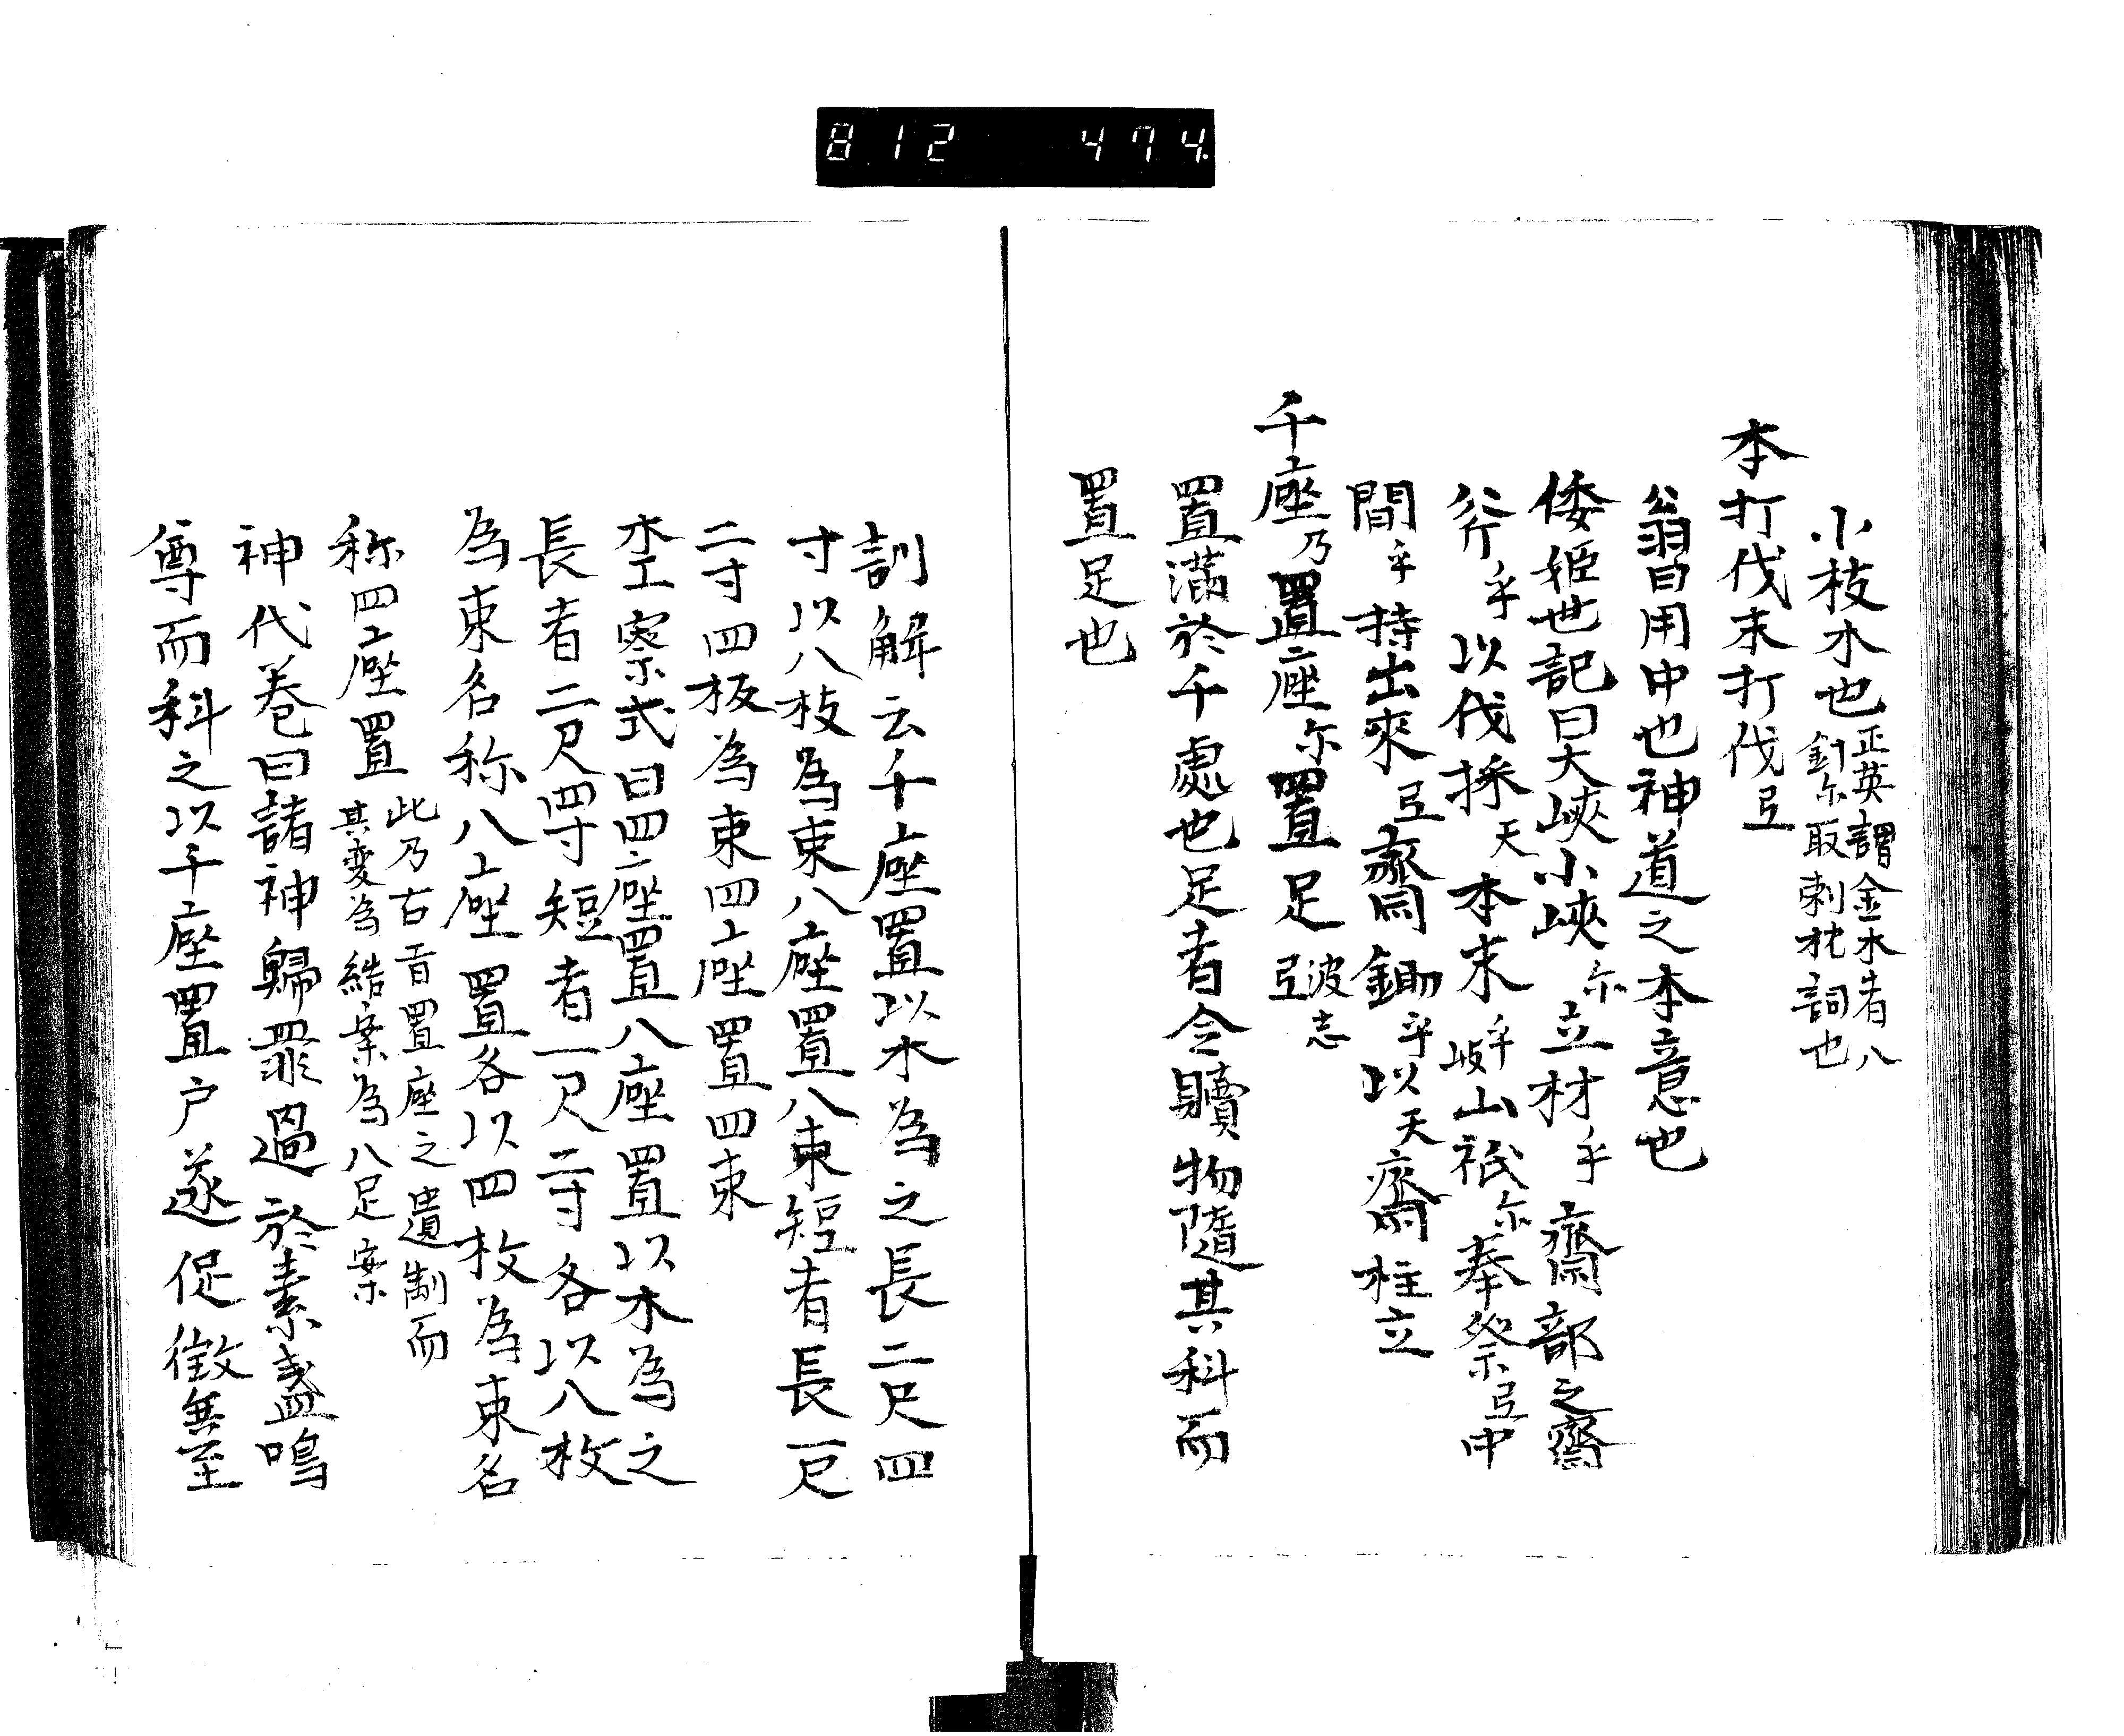 812 474
小枝木也正英謂金木者八
針尓取刺枕詞也
本打伐末打伐弖
翁曰用中也神道之本意也
倭姫世記曰大峽小峽尓立材乎齋部之齋
斧乎以伐採天本末乎岐山祇尓奉祭弖中
間乎持出來弖齋鋤乎以天齋柱立
千座乃置座尓置足波志弖
置滿於千處也足者令贖物隨其科而
置足也
訓解云千座置以木為之長二尺四
寸以八枝為束八座置八束短者長一尺
二寸四板為束四座置四束
木工寮式曰四座置八座置以木為之
長者二尺四寸短者一尺二寸各以八枚
為束名称八座置各以四枚為束名
称四座置此乃古昔置座之遺制而
其変為結案為八足案
神代巻曰諸神歸罪過於素盞嗚
尊而科之以千座置戸遂促徴無至